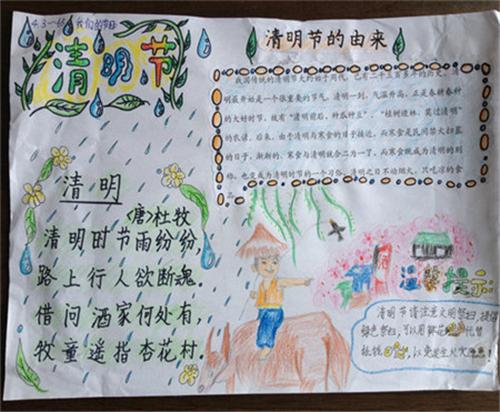 4.3—4.5 我们的节日
清明节
清明
<唐>杜牧
清明时节雨纷纷,
路上行人欲断魂。
借问酒家何处有,
牧童遥指杏花村.
清明节的由来
我国传统的清明节大约始于周代,已有二千五百多年的历史。清
明最开始是一个很重要的节气,清明一到,气温升高,正是春耕春种
的大好时节,故有“清明前后,种瓜种豆”。“植树造林,莫过清明”
的农谚。后来,由于清明与寒食的日子接近,而寒食是民间禁火扫墓
的日子,渐渐的,寒食与清明就合二为一了,而寒食既成为清明的别
称,也变成为清明时节的一个习俗,清明之日不动烟火,只吃凉的食
温馨提示:
清明节请注意文明祭扫,提倡
绿色祭扫,可以用鲜花代替
纸钱,以免发生火灾